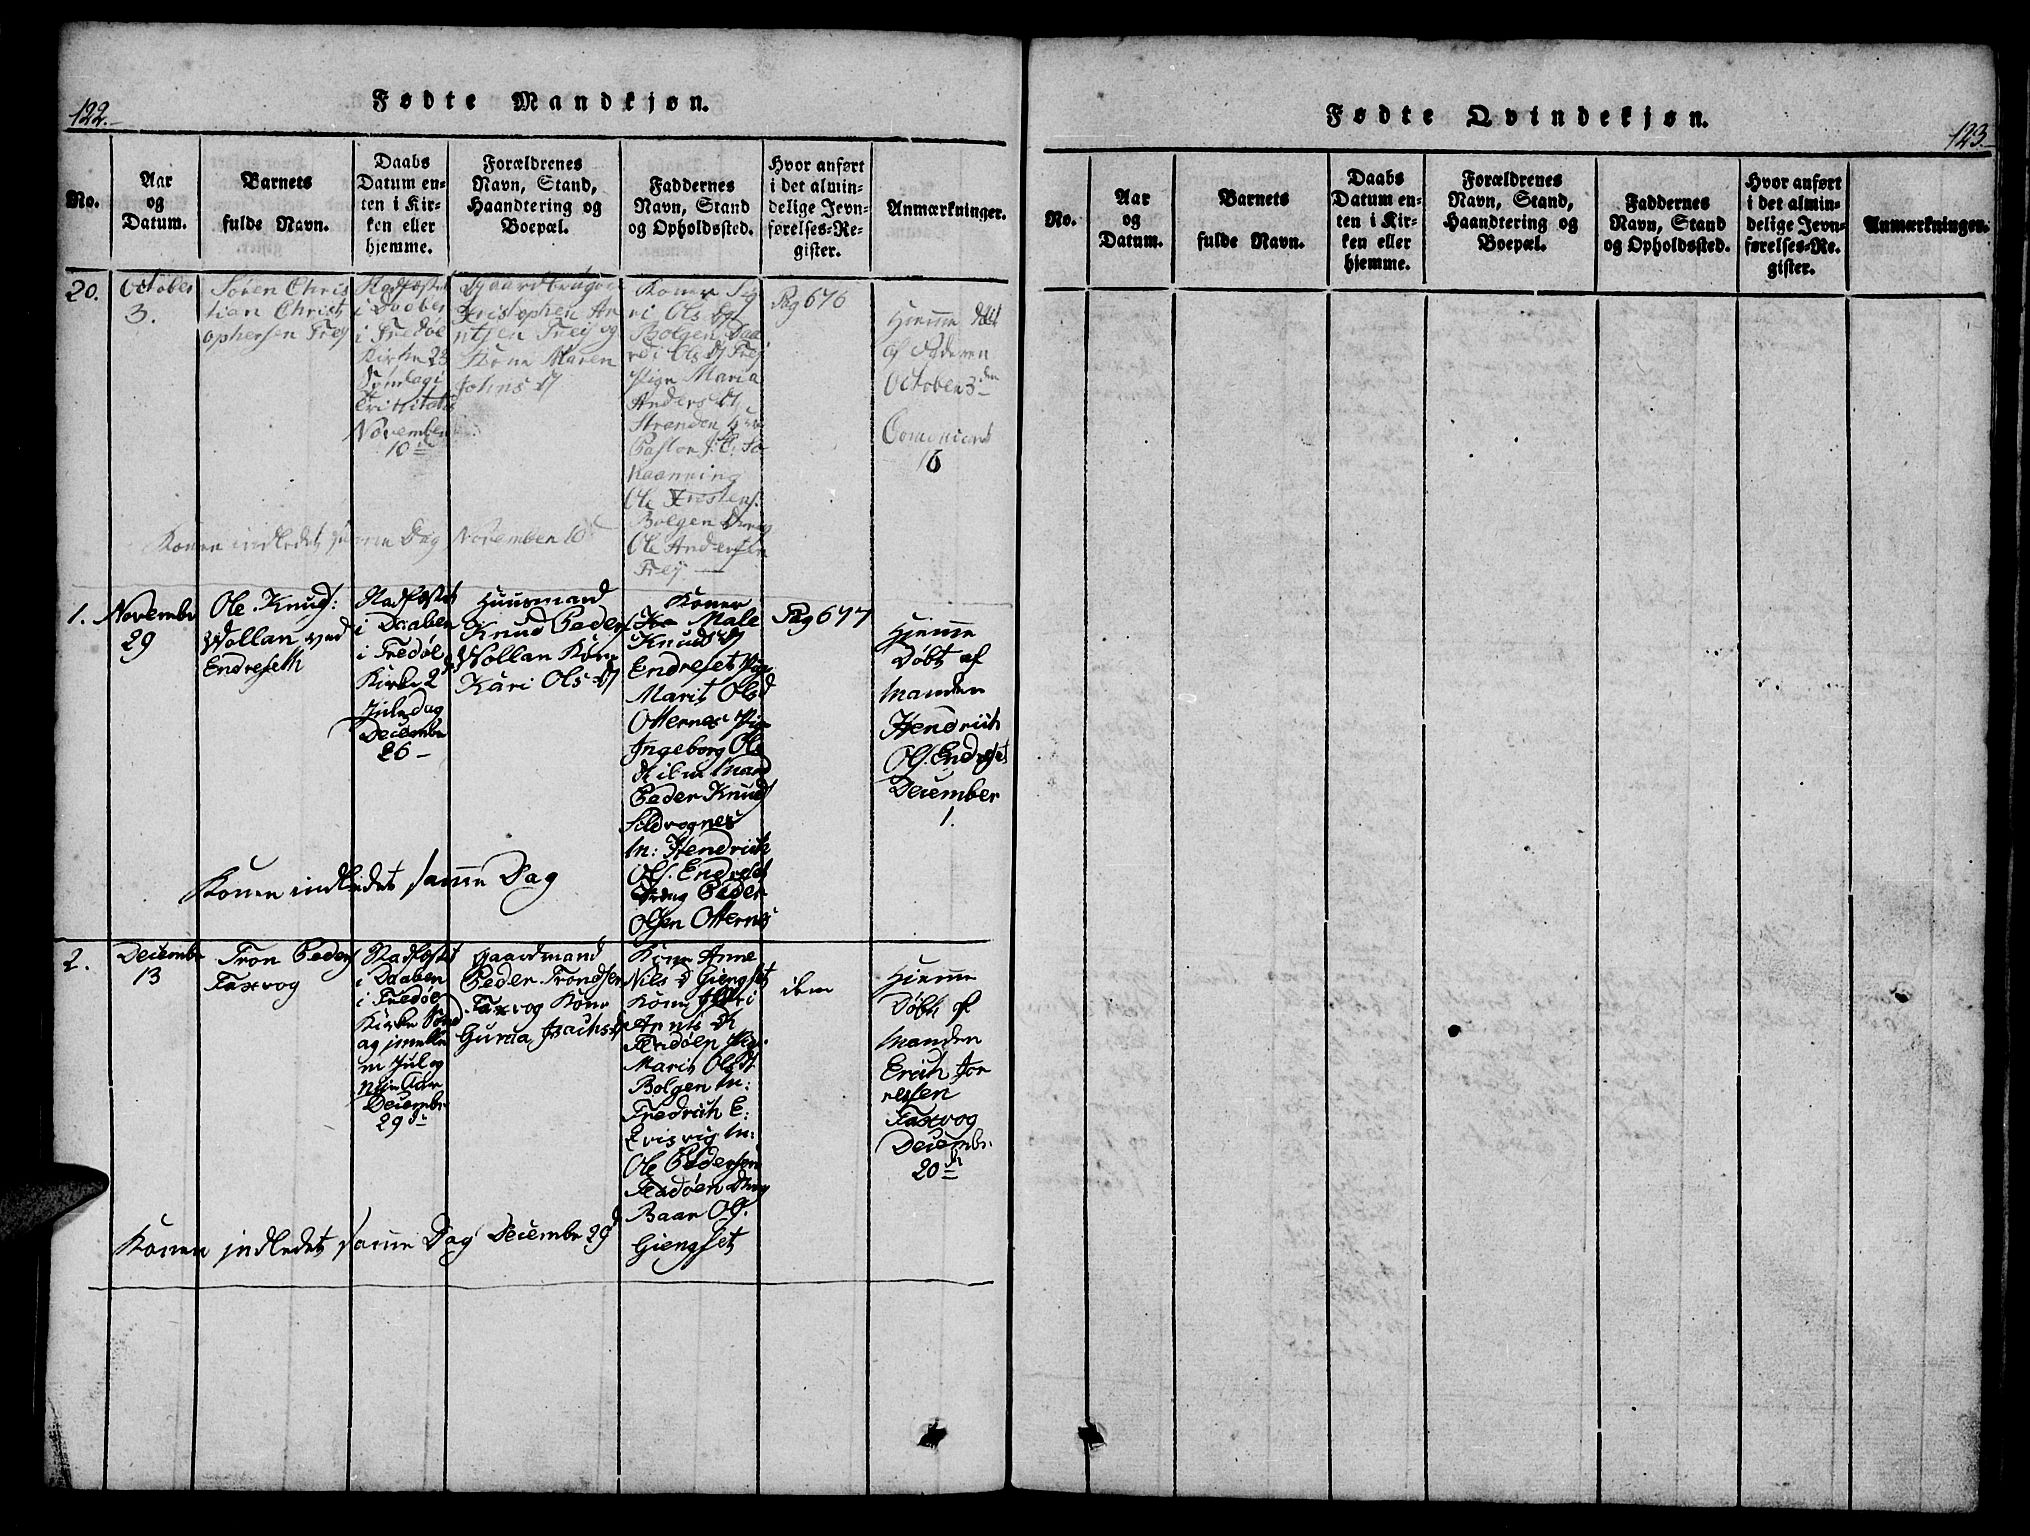 122.
Fødte Mandkjøn.
No.
Aar
og
Datum.
Barnets
fulde Navn.
Daabs
Datum en-
ten i Kir-
ken eller
hjemme.
Forældrenes
Navn, Stand,
Haandtering og
Boepæl.
Faddernes
Navn, Stand
og Opholdssted.
Hvor anført
i det almin-
delige Jevn-
førelses-Re-
gister.
Anmærkninger.
20.
October
3.
Søren Chris
tian Christ
ophersen Frej
Stadfæstet
i Daaben
i Fredøe
Kirke 23
Søndag
November
10
Kristopher Ar
ntsen Frej og
Kone Maren
Johns D
Koner Sig
ri Ols D
Bolgen
Ols D Frej
Pige Maria
Anders D
Stranden
Pastor
Ole Kristens.
Bolgen Dreng
Ole Andersen
Frej
Pag 676
Hjemme døbt
af Faderen
October 3 den
16
Konen indledet samme Dag November 10
1.
Novembr
29
Ole Knuds:
Vollan ved
Endreseth
Stadfæstet
i Daaben
i Fredøe
Kirke 2
Juledag
Decembr
26
Huusmand
Knud Peders
Vollan Kone
Kari Ols D
Koner
Male
Knuds D
Endreset Pig
Marit Ols D
Otternes Pige
Ingeborg Ols
D
Peder Knuds
Sildvognes
M: Hendrich
Ols. Endreset
Dreng Peder
Olsen Otternes
Pag 677
Hjemme
Døbt af
Manden
Hendrich
Ols. Endreset
December
1.
Konen indledet samme Dag
2.
Decembr
13
Tron Peders
Faxvog
Stadfæstet
i Daaben
i Fredøe
Kirke Sønd
ag imelle
m Jul og
Nyt Aar
Decembr
29 d
Gaardmand
Peder Trondsen
Faxvog Kone
Gurua Isachs D
Kone Anne
Nils D Giengset
Kone
Arnts D
Fladøen Pig.
Marit Ols D
Bolgen M:
Fredrich E:
Qvisvig M:
Ole Pedersen
Fladøen Dreng
Baar Ols.
Giengset
ibm
Hjemme
Døbt af
Manden
Erich Jor
Faxvog
Decembr.
20
Konen indledet samme Dag Decembr 29
Fødte Qvindekjøn.
123.
No.
Aar
og
Datum.
Barnets
fulde Navn.
Daabs
Datum en-
ten i Kir-
ken eller
hjemme.
Forældrenes
Navn, Stand,
Haandtering og
Boepæl.
Faddernes
Navn, Stand
og Opholdssted.
Hvor anført
i det almin-
delige Jevn-
førelses-Re-
gister.
Anmærkninger.